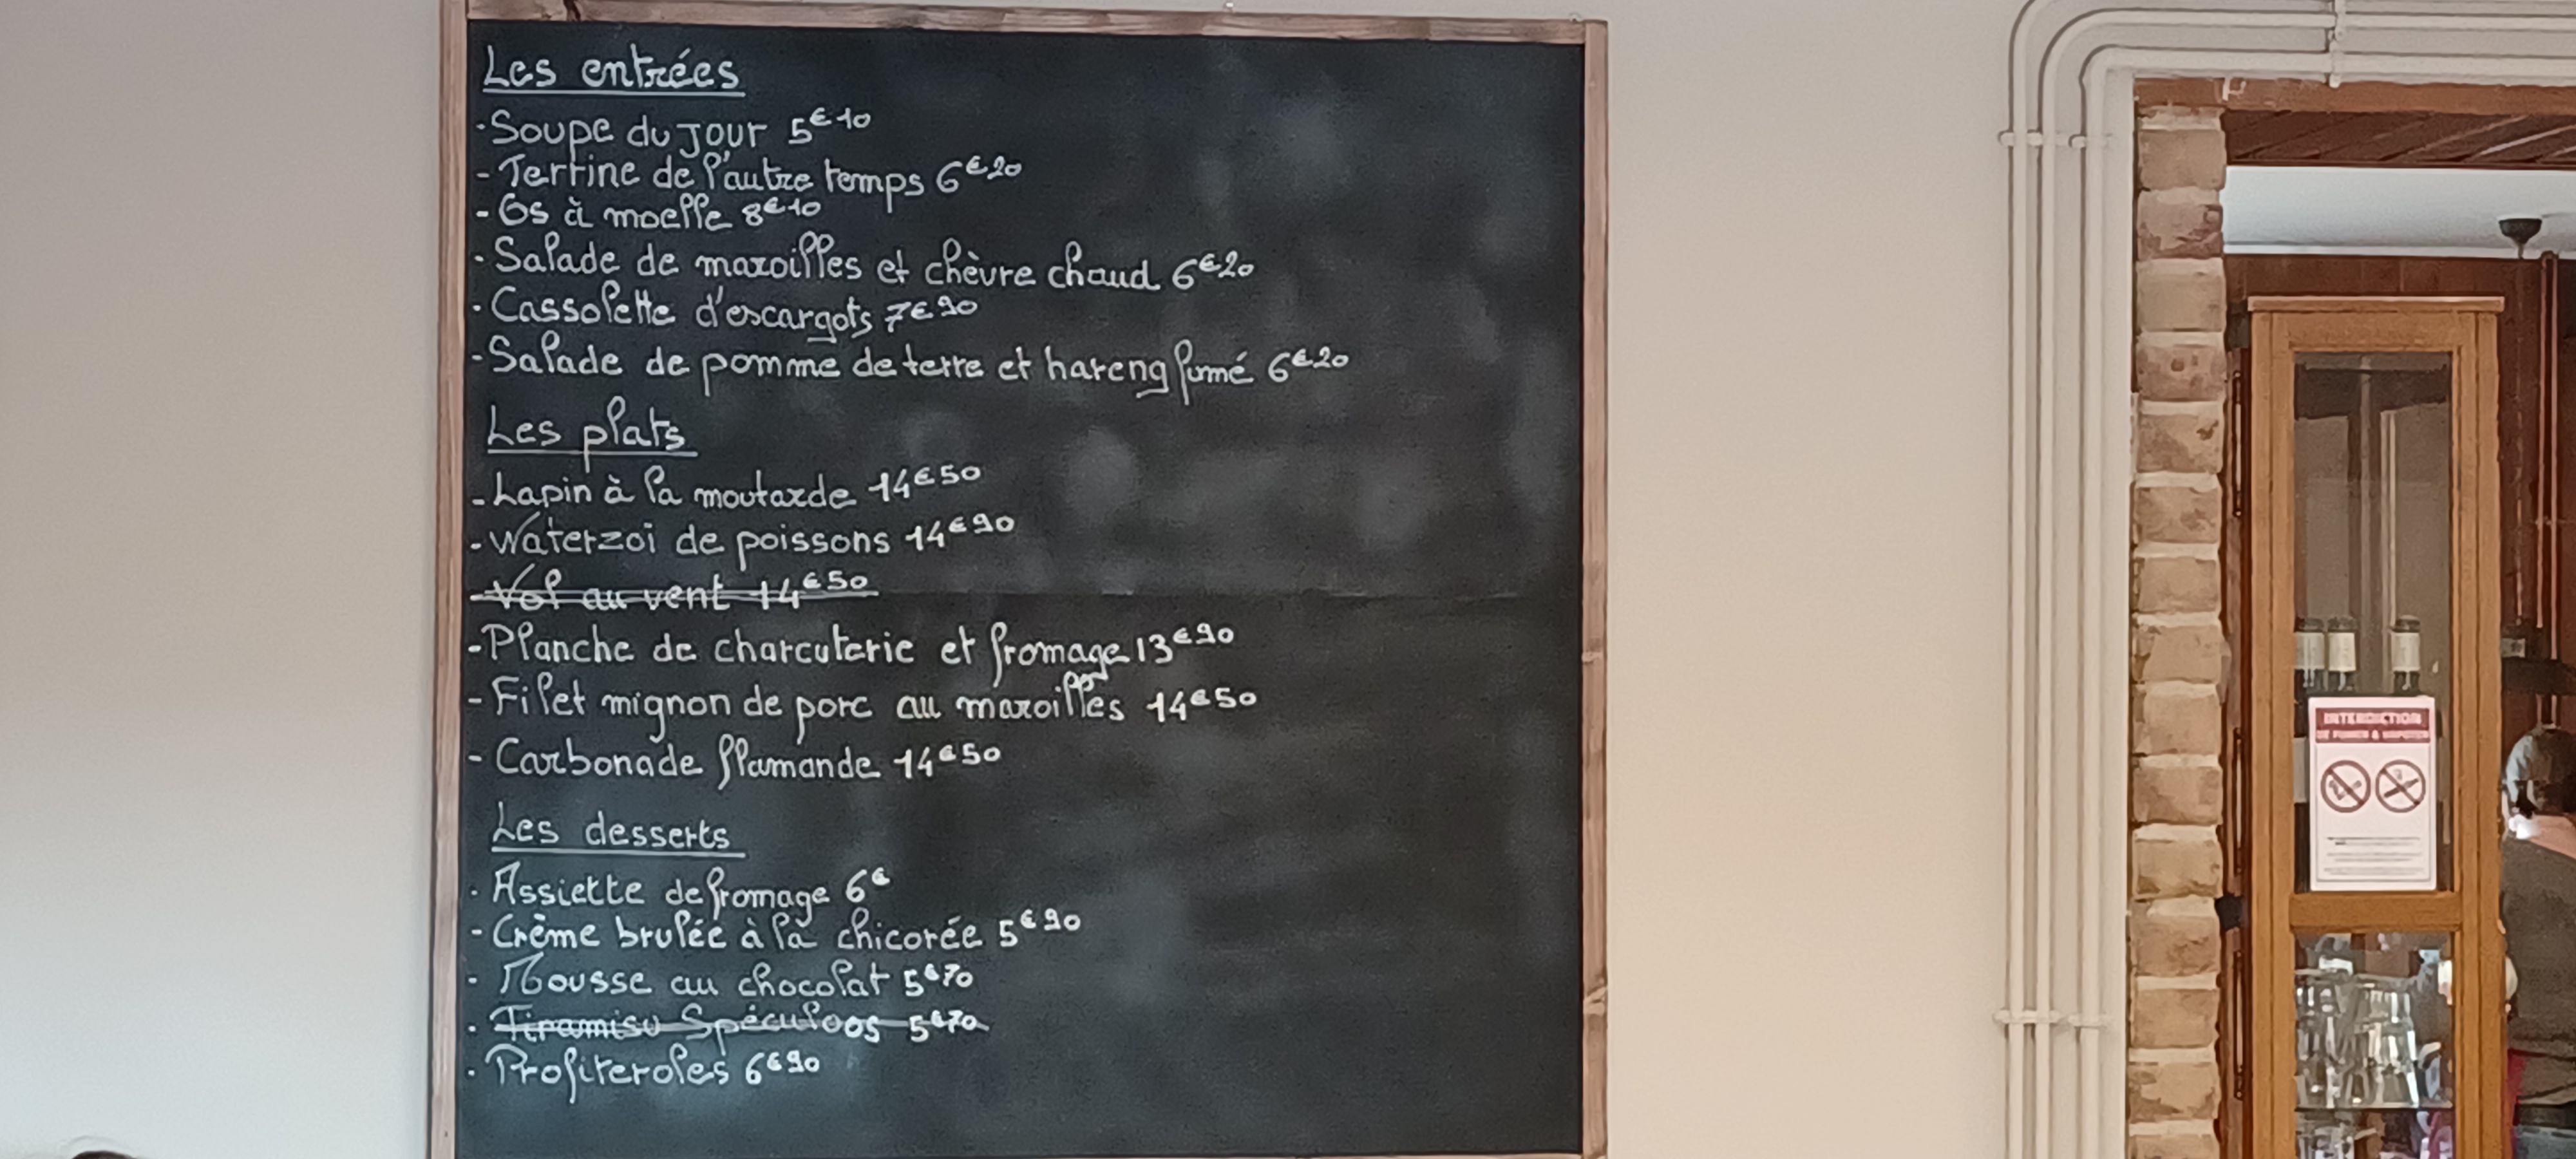 Les entrées
- Soupe du jour 5€10
- Terrine de l'autre temps 6€20
- Os à moelle 8€10
- Salade de maroilles et chèvre chaud 6€20
- Cassolette d'escargots 7€90
- Salade de pomme de terre et hareng fumé 6€20
Les plats
- Lapin à la moutarde 14€50
- Waterzoi de poissons 14€90
- Vol au vent 14€50
- Planche de charcuterie et fromage 13€90
- Filet mignon de porc au maroilles 14€50
- Carbonade flamande 14€50
Les desserts
- Assiette de fromage 6€
- Crème brulée à la chicorée 5€90
- Mousse au chocolat 5€70
- Tiramisu Spéculoos 5€70
- Profiteroles 6€90
INTERDICTION
DE FUMER & VAPOTER